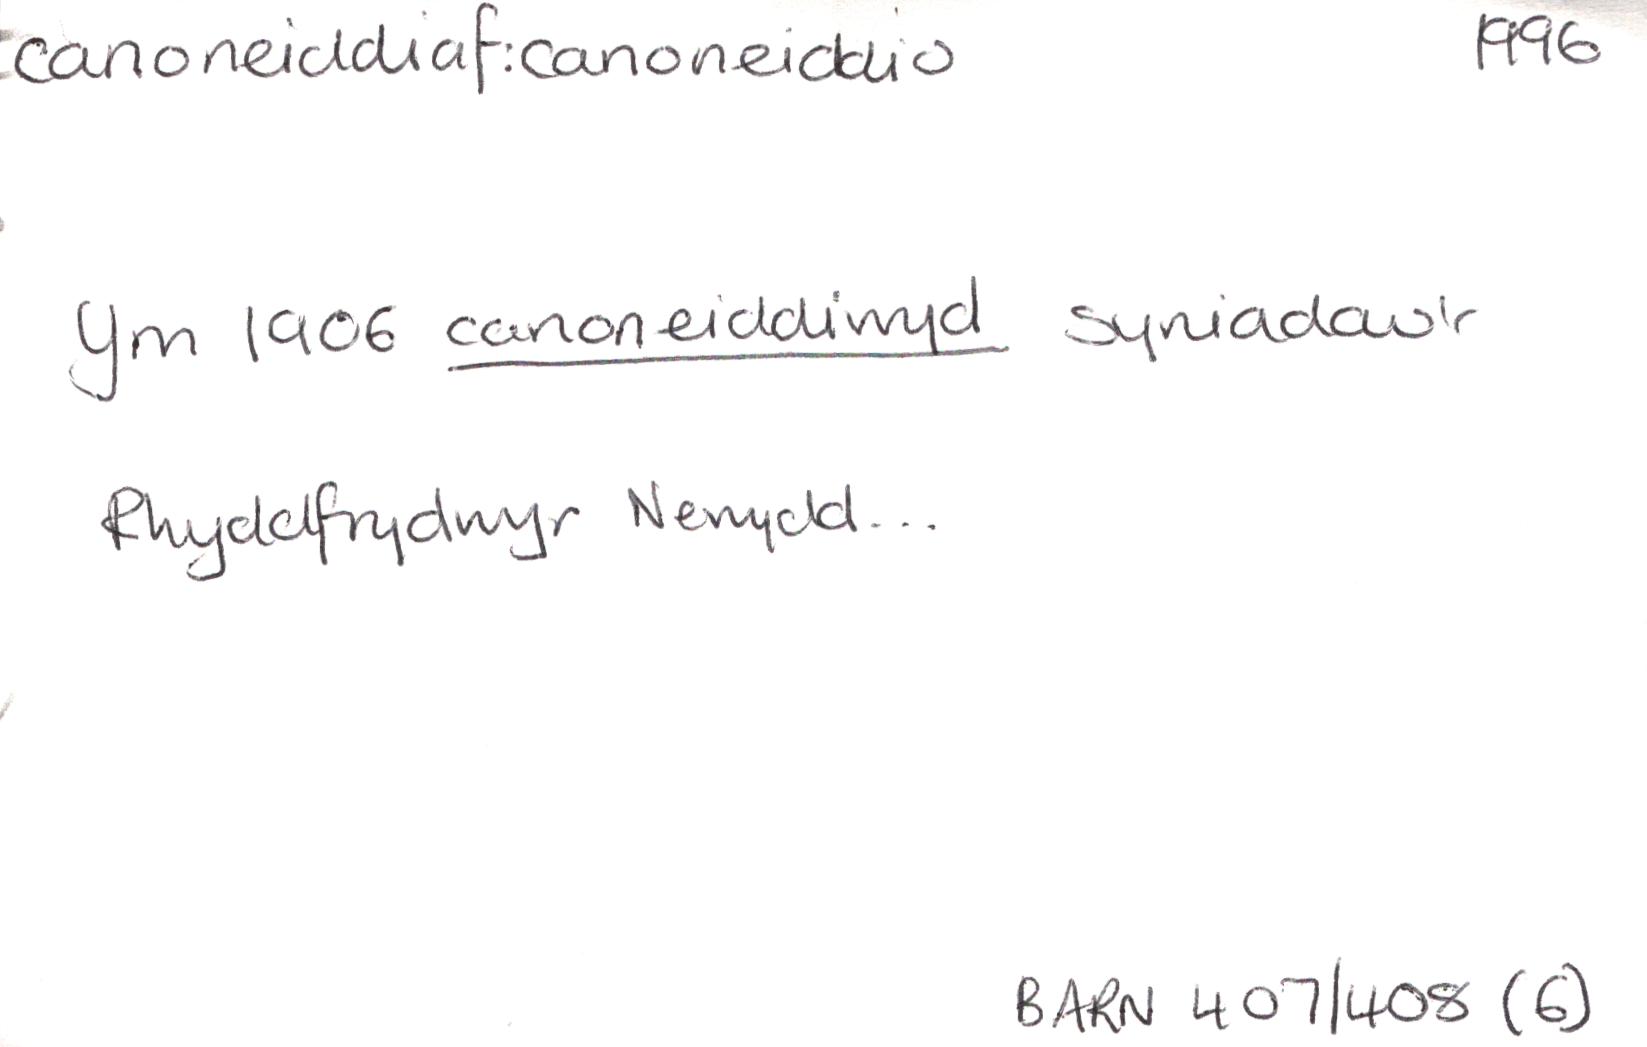 canoneiddiaf: canoneiddio 1996
Ym 1906 canoneiddiwyd syniadau'r
Rhyddfrydwyr Newydd...
BARN 407/408 (6)